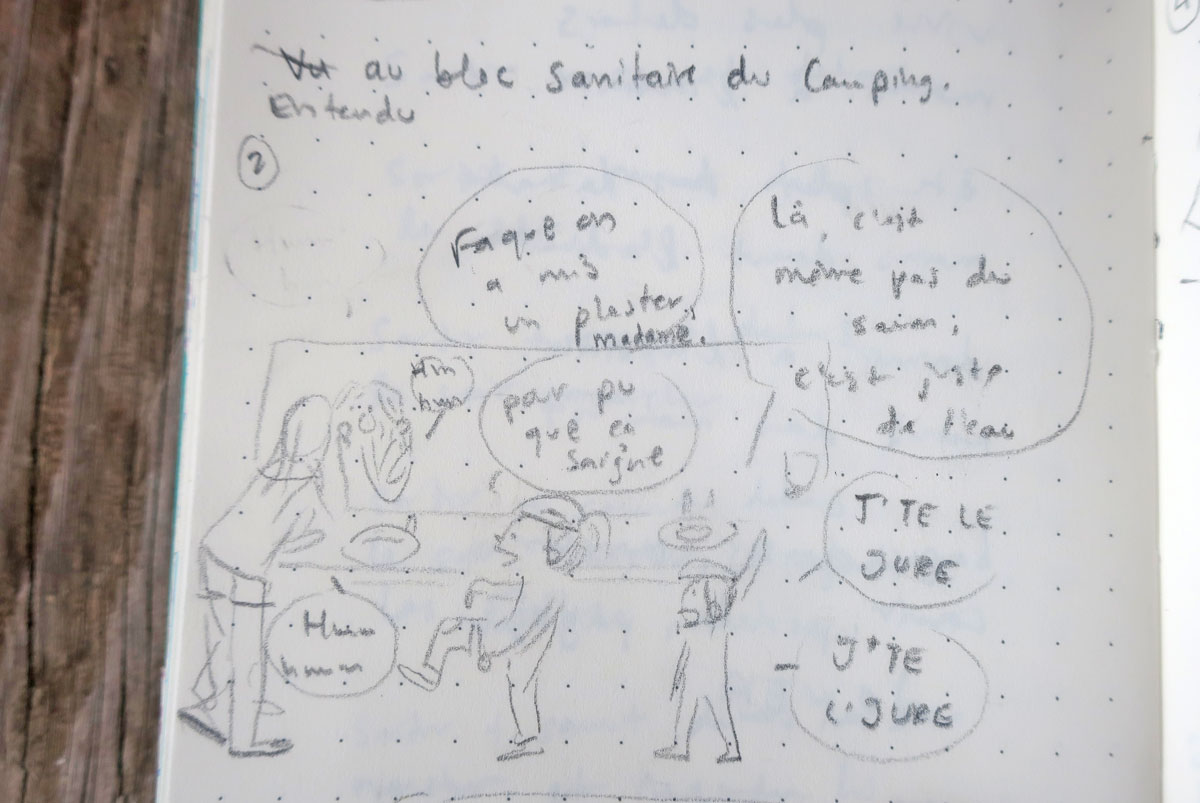 Vu au bloc sanitaire du Camping.
Entendu
2
Faque on
a mis
un plaster,
madame.
Là, c'est
même pas du
savon,
c'est juste
de l'eau
Hm
hum
pour pu
que ça
saigne
J'TE LE
JURE
Hum
hmm
J'TE
L'JURE